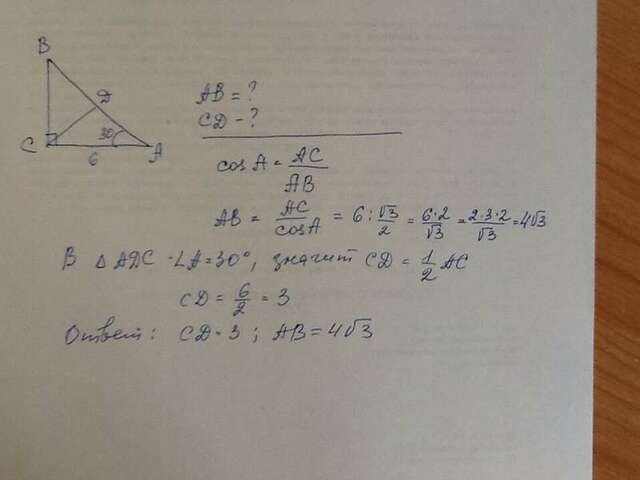 B
D
30
C
6
A
AB = ?
CD - ?
cos A = AC / AB
AB = AC / cosA = 6 : √3 / 2 = 6·2 / √3 = 2·3·2 / √3 = 4√3
В △ ADC ∠A = 30°, значит CD = 1/2 AC
CD = 6/2 = 3
Ответ: CD = 3 ; AB = 4√3